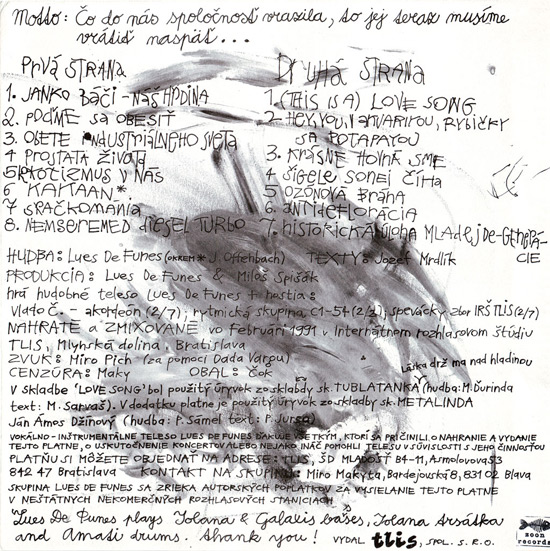 Motto: Čo do nás spoločnosť vrazila, to jej teraz musíme
vrátiť naspäť...
PRVÁ STRANA
1. JANKO BÁČI - NÁŠ HRDINA
2. POĎME SA OBESIŤ
3. OBETE INDUSTRIÁLNEHO SVETA
4 PROSTATA ŽIVOTA
5 EROTIZMUS V NÁS
6 KANKAAN*
7 SRAČKOMÁNIA
8. NEMSOREMED DIESEL TURBO
DRUHÁ STRANA
1. (THIS IS A) LOVE SONG
2. HEY, YOU, NATVARIROU, RYBIČKY
SA POTÁPAJÚ
3. KRÁSNE HOLNÁ SME
4 SIGELE SONEJ ČÍHA
5 OZÓNOVÁ BRÁNA
6. ANTIDEFLORÁCIA
7. HISTORICKÁ ÚLOHA MLADEJ DE-GENERÁ-
CIE
HUDBA: LUES DE FUNES (OKREM* J. Offenbach) TEXTY: Jozef Mrdlík
PRODUKCIA: LUES DE FUNES & Miloš Spišák
hrá hudobné teleso LUES DE FUNES + hostia:
Vlado Č. - akordeón (2/7), rytmická skupina C1-54 (2/2), spevácky zbor IRŠ TLIS (2/7)
NAHRATÉ a ZMIXOVANÉ vo februári 1991 v Internátnom rozhlasovom štúdiu
TLIS, Mlynská dolina, Bratislava
ZVUK: Miro Pich (za pomoci Dada Vargu)
CENZÚRA: Maky OBAL: čok
Láska drž ma nad hladinou
V skladbe 'LOVE SONG' bol použitý úryvok zo skladby sk. TUBLATANKA (hudba: M. Ďurinda
text: M. Sarvaš). V dodatku platne je použitý úryvok zo skladby sk. METALINDA
Ján Ámos Džínový (hudba: P. Sámel text: P. Jursa)
VOKÁLNO-INŠTRUMENTÁLNE TELESO LUES DE FUNES ĎAKUJE VŠETKÝM, KTORÍ SA PRIČINILI O NAHRANIE A VYDANIE
TEJTO PLATNE, O USKUTOČNENIE KONCERTOV ALEBO NEJAKO INÁČ POMOHLI TELESU V SÚVISLOSTI S JEHO ČINNOSŤOU
PLATŇU SI MÔŽETE OBJEDNAŤ NA ADRESE: TLIS, ŠD MLADOSŤ B4-11, Asmolovova 53
842 47 Bratislava KONTAKT NA SKUPINU: Miro Makyta, Bardejovská 8, 831 02 Blava
SKUPINA LUES DE FUNES SA ZRIEKA AUTORSKÝCH POPLATKOV ZA VYSIELANIE TEJTO PLATNE
V NEŠTÁTNYCH NEKOMERČNÝCH ROZHLASOVÝCH STANICIACH
"Lues De Funes plays Jolana & Galaxis bases, Jolana Arsátka
and Amati drums. Thank you! VYDAL tlis, SPOL. S. R. O.
zoon
records